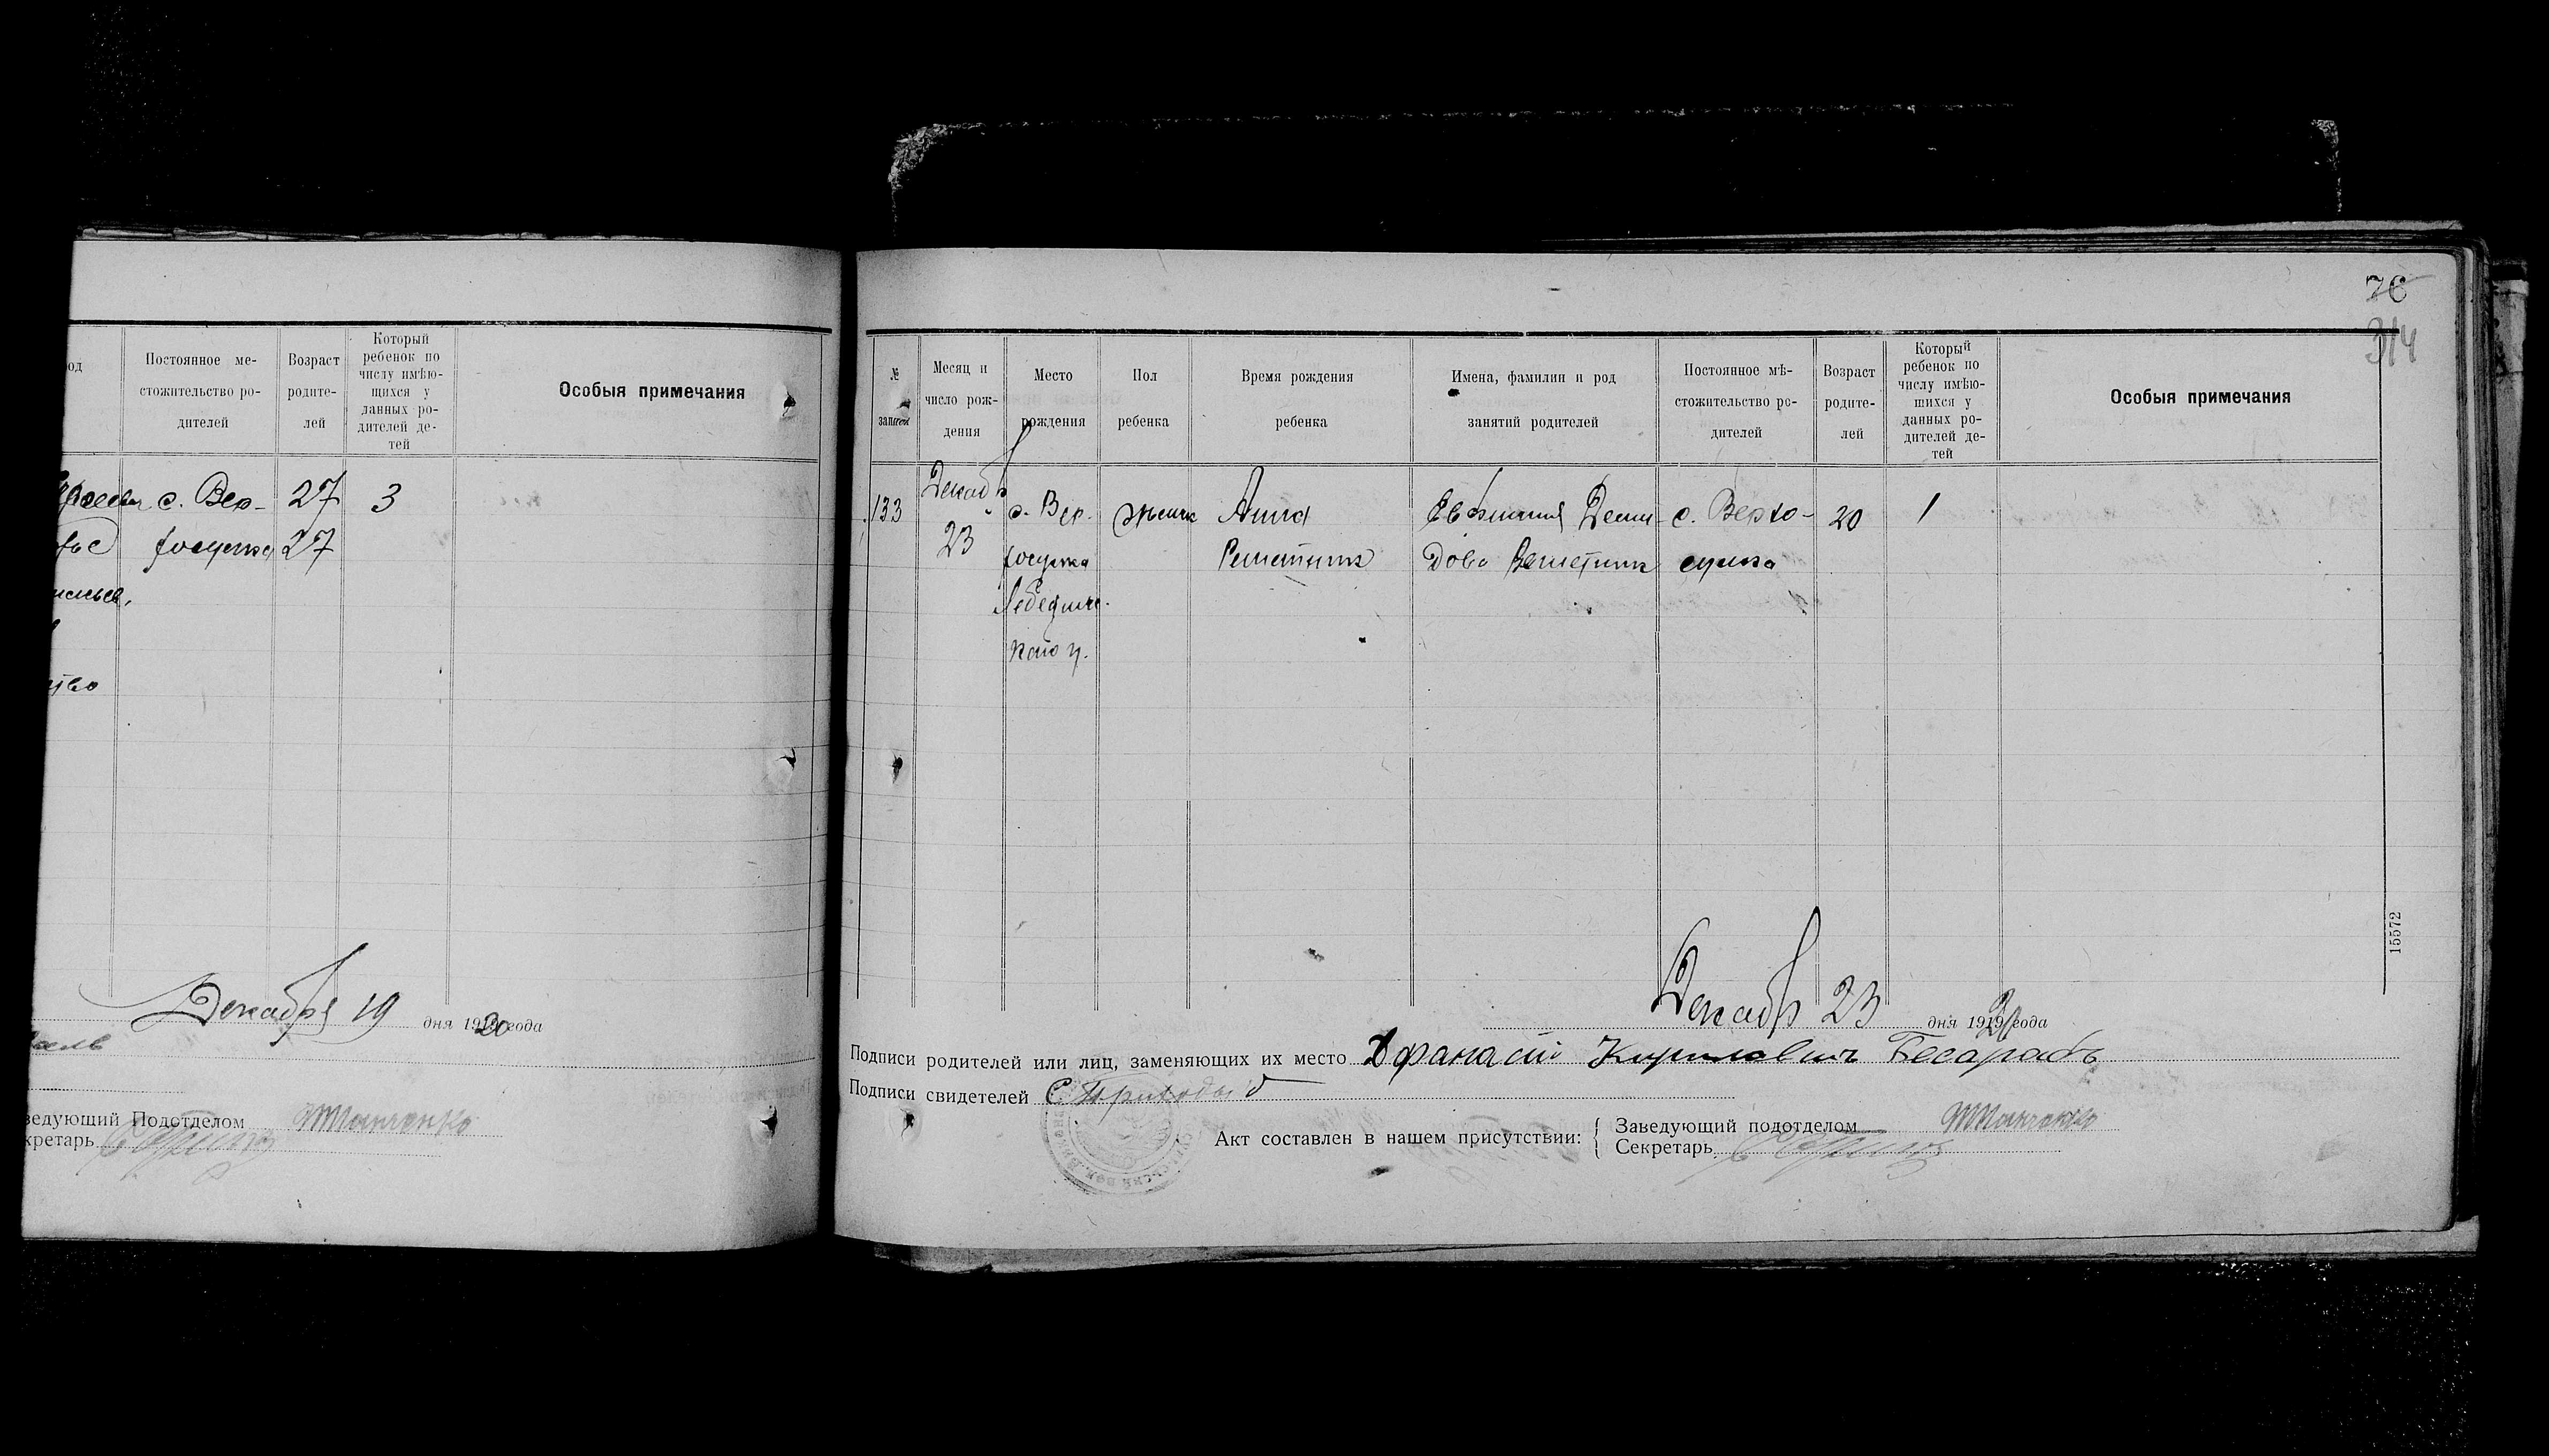 од
Постоянное ме-
стожительство ро-
дителей
Возраст
родите-
лей
Который
ребенок по
числу имѣю-
щихся у
данных ро-
дителей де-
тей
Особыя примечания
с. Вер- 27 3
хосулка 27
Декабря 19 дня 1920 года
ведующий Подотделом
кретарь
76
314
№
записи
Месяц и
число рож-
дения
Место
рождения
Пол
ребенка
Время рождения
ребенка
Имена, фамилии и род
занятий родителей
Постоянное мѣ-
стожительство ро-
дителей
Возраст
родите-
лей
Который
ребенок по
числу имѣю-
щихся у
данных ро-
дителей де-
тей
Особыя примечания
133 Декаб 23
с. Вер.
хосулка
Лебединс-
каго у.
женск
Анна
Решетник
Евфимия Деми-
дова Решетник
с. Верхо-
сулка
20
1
15572
Декабр 23 дня 1920 года
Подписи родителей или лиц, заменяющих их место Афанасий Кирилович Бесарабъ
Подписи свидетелей С. Приходько
Акт составлен в нашем присутствии:
Заведующий подотделом
Секретарь